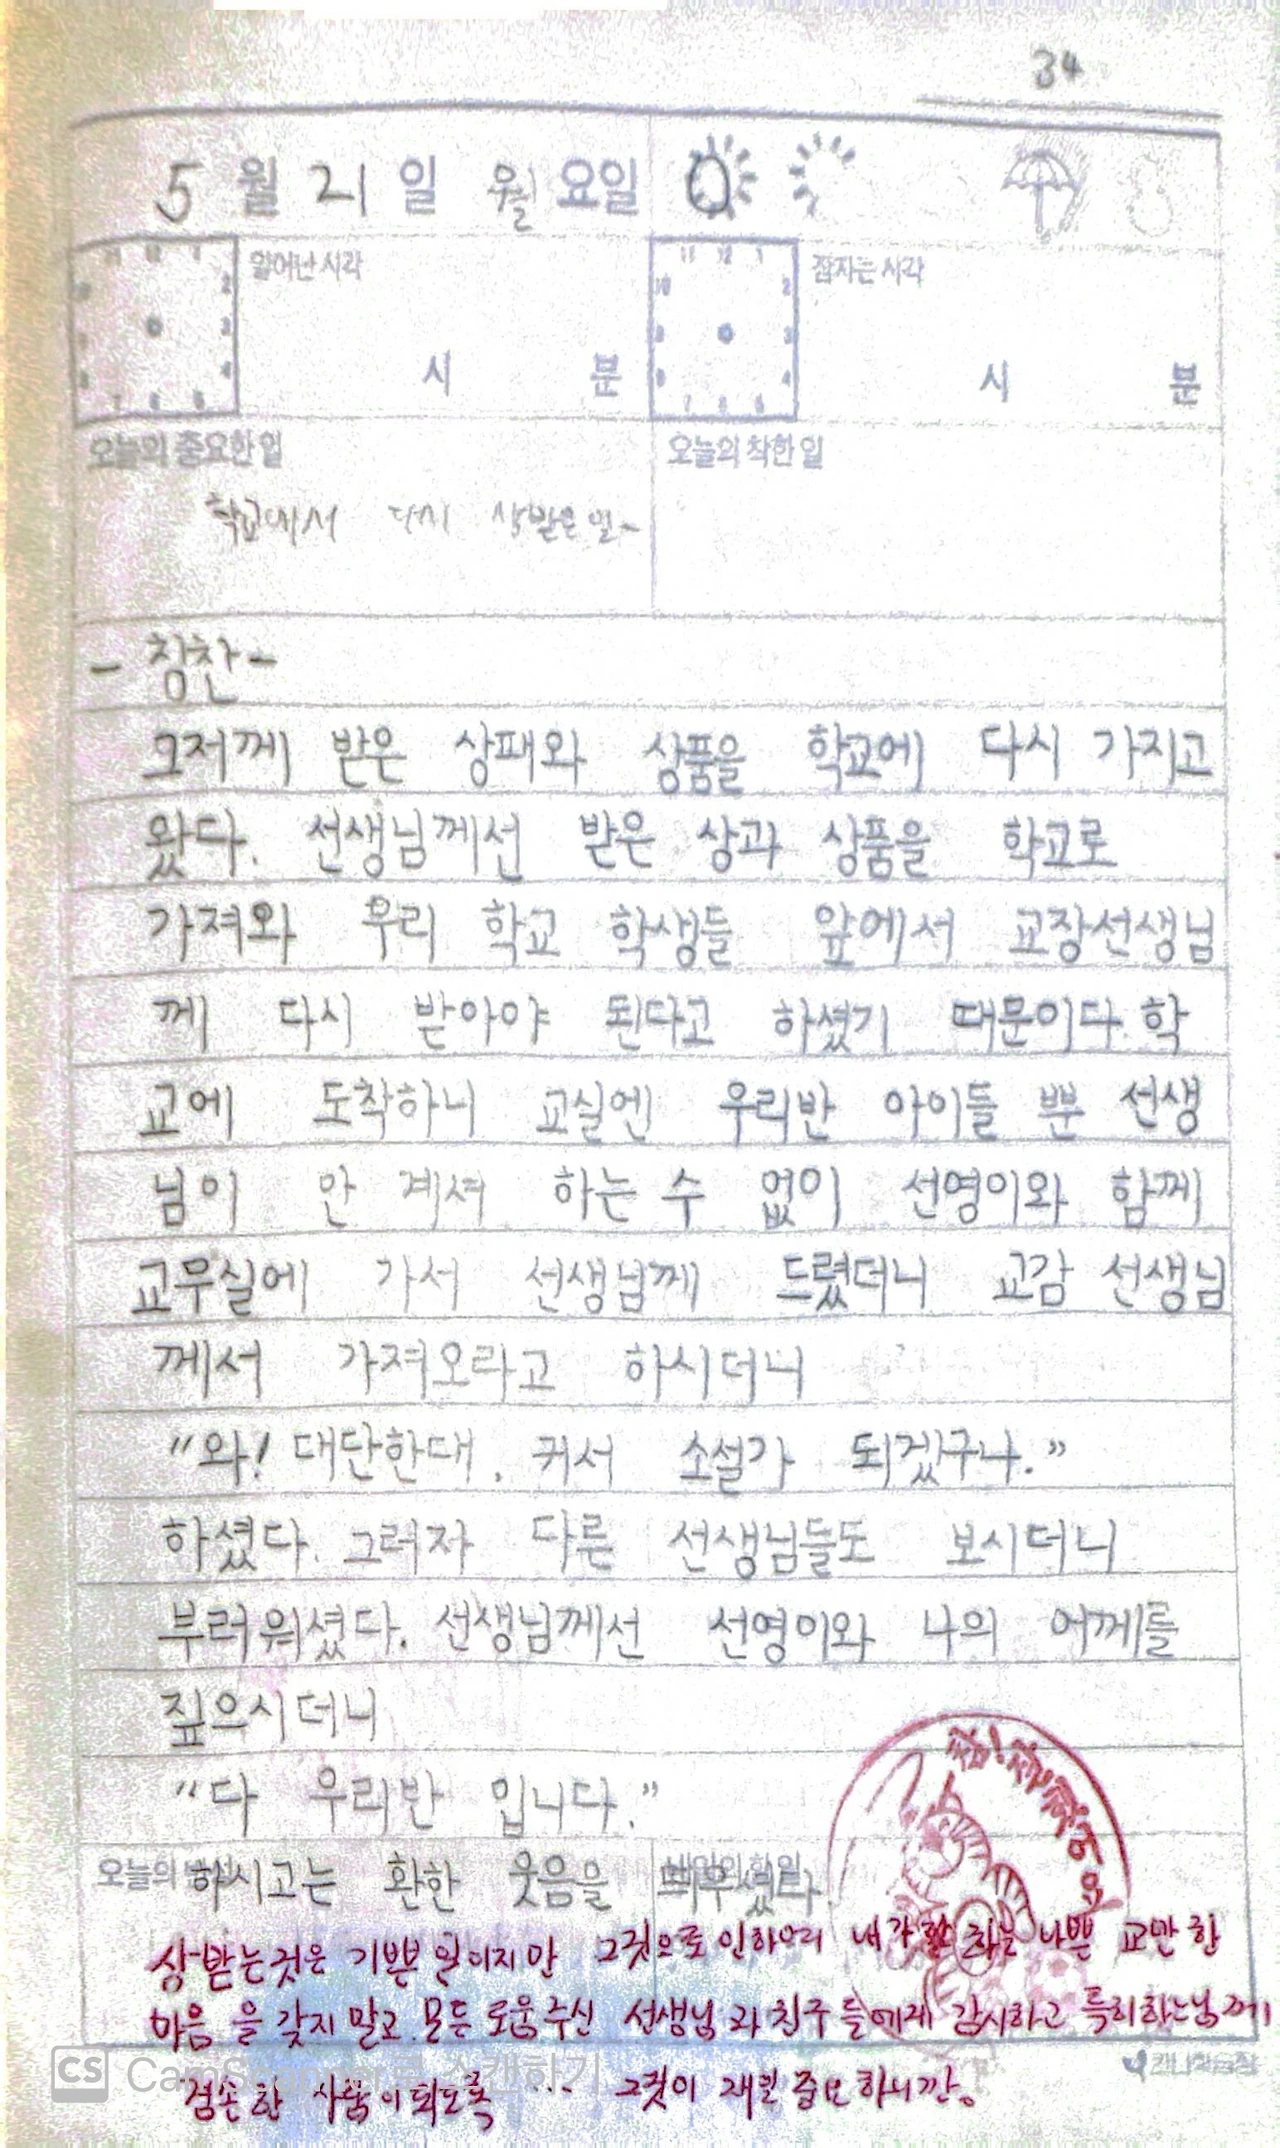 34
5 월 21 일 월 요일
일어난시각
잠자는시각
시 분
시 분
오늘의 중요한일
오늘의 착한일
학교에서 다시 상받은 일~
- 칭찬 -
그저께 받은 상패와 상품을 학교에 다시 가지고
왔다. 선생님께선 받은 상과 상품을 학교로
가져와 우리 학교 학생들 앞에서 교장선생님
께 다시 받아야 된다고 하셨기 때문이다. 학
교에 도착하니 교실엔 우리반 아이들 뿐 선생
님이 안 계셔 하는 수 없이 선영이와 함께
교무실에 가서 선생님께 드렸더니 교감 선생님
께서 가져오라고 하시더니
"와! 대단한대. 커서 소설가 되겠구나."
하셨다. 그러자 다른 선생님들도 보시더니
부러워셨다. 선생님께선 선영이와 나의 어께를
짚으시더니
"다 우리반 입니다."
오늘의
하시고는 환한 웃음을 띄우셨다.
상받는것은 기쁜 일이지만 그것으로 인하여 내가 하는 나쁜 교만한
마음을 갖지 말고 모든 도움주신 선생님과 친구들에게 감사하고 특히하느님께
겸손한 사람이되도록 ... 그것이 제일 중요하니깐.
CS CamScanner로 스캔하기